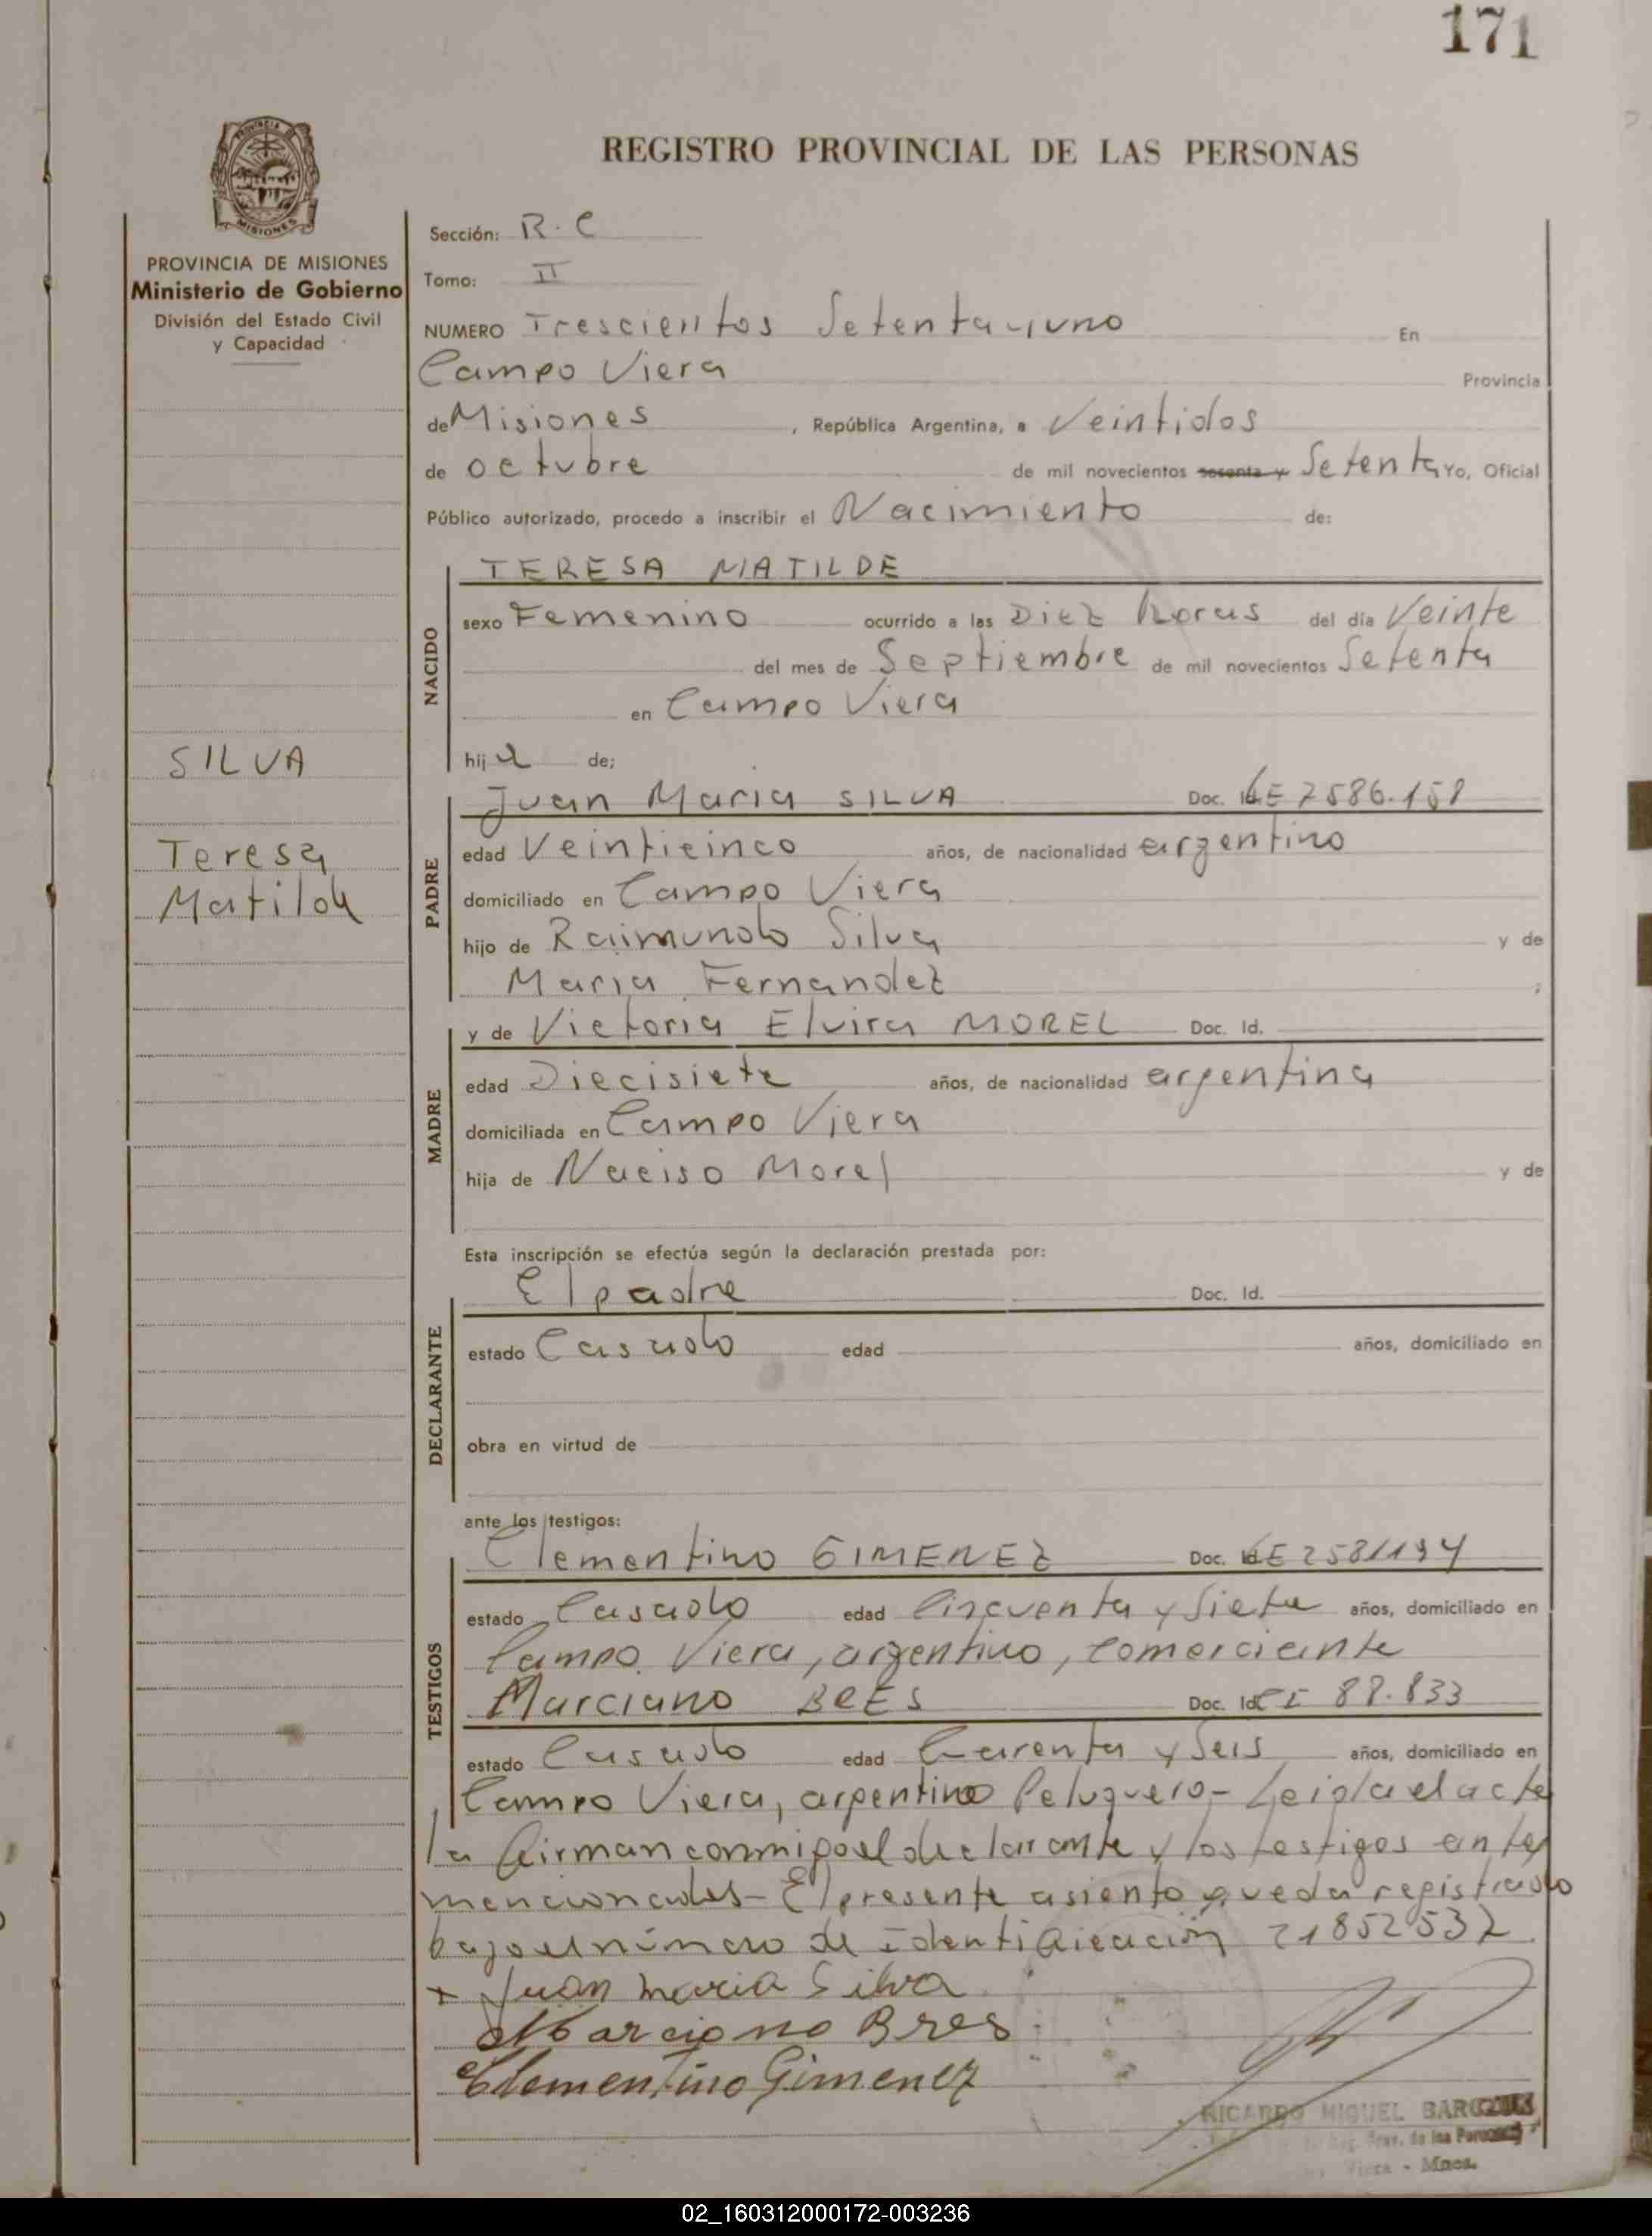 171
REGISTRO PROVINCIAL DE LAS PERSONAS
PROVINCIA DE MISIONES
Ministerio de Gobierno
División del Estado Civil
y Capacidad
SILVA
Teresa
Matilde
Sección: R. C
Tomo: II
NUMERO Trescientos Setenta y uno En
Campo Viera Provincia
de Misiones, República Argentina, a Veintidos
de octubre de mil novecientos sesenta y Setenta Yo, Oficial
Público autorizado, procedo a inscribir el Nacimiento de:
NACIDO
TERESA MATILDE
sexo Femenino ocurrido a las Diez horas del día Veinte
del mes de Septiembre de mil novecientos Setenta
en Campo Viera
hija de;
PADRE
Juan Maria SILVA Doc. Id LE 7586.158
edad Veinticinco años, de nacionalidad argentino
domiciliado en Campo Viera
hijo de Raimundo Silva y de
Maria Fernandez ;
MADRE
y de Victoria Elvira MOREL Doc. Id.
edad Diecisiete años, de nacionalidad argentina
domiciliada en Campo Viera
hija de Naciso Morel y de
Esta inscripción se efectúa según la declaración prestada por:
DECLARANTE
El padre Doc. Id.
estado Casado edad años, domiciliado en
obra en virtud de
ante los testigos:
TESTIGOS
Clementino GIMENEZ Doc. Id LE 2581194
estado Casado edad Cincuenta y Siete años, domiciliado en
Campo Viera, argentino, comerciante
Marciano BRES Doc. Id CI 88.833
estado Casado edad Cuarenta y Seis años, domiciliado en
Campo Viera, argentino Peluquero - Leida el acta
la firman conmigo el declarante y los testigos antes
mencionados - El presente asiento queda registrado
bajo el número de Identificación 21852532
+ Juan maria Silva
Marciano Bres
Clementino Gimenez
RICARDO MIGUEL
Prov. de las
Viera - Mnes.
02_160312000172-003236